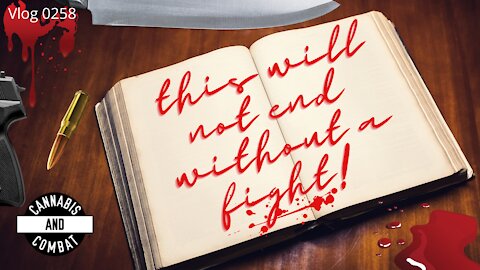 Vlog 0258
this will
not end
without a
fight!
CANNABIS
AND
COMBAT